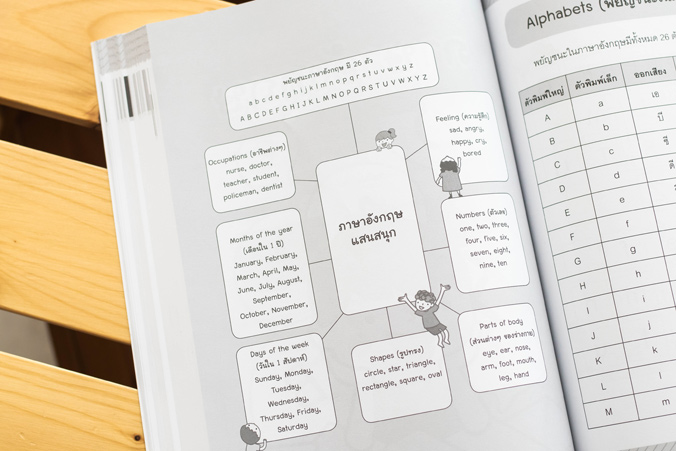 พยัญชนะภาษาอังกฤษ มี 26 ตัว
a b c d e f g h i j k l m n o p q r s t u v w x y z
A B C D E F G H I J K L M N O P Q R S T U V W X Y Z
Occupations (อาชีพต่างๆ)
nurse, doctor,
teacher, student,
policeman, dentist
Feeling (ความรู้สึก)
sad, angry,
happy, cry,
bored
ภาษาอังกฤษ
แสนสนุก
Months of the year
(เดือนใน 1 ปี)
January, February,
March, April, May,
June, July, August,
September,
October, November,
December
Numbers (ตัวเลข)
one, two, three,
four, five, six,
seven, eight,
nine, ten
Days of the week
(วันใน 1 สัปดาห์)
Sunday, Monday,
Tuesday,
Wednesday,
Thursday, Friday,
Saturday
Shapes (รูปทรง)
circle, star, triangle,
rectangle, square, oval
Parts of body
(ส่วนต่างๆ ของร่างกาย)
eye, ear, nose,
arm, foot, mouth,
leg, hand
Alphabets
พยัญชนะในภาษาอังกฤษมีทั้งหมด 26
ตัวพิมพ์ใหญ่ ตัวพิมพ์เล็ก ออกเสียง
A a เอ
B b บี
C c ซี
D d ดี
E e
F f
G g
H h
I i
J j
K k
L l
M m